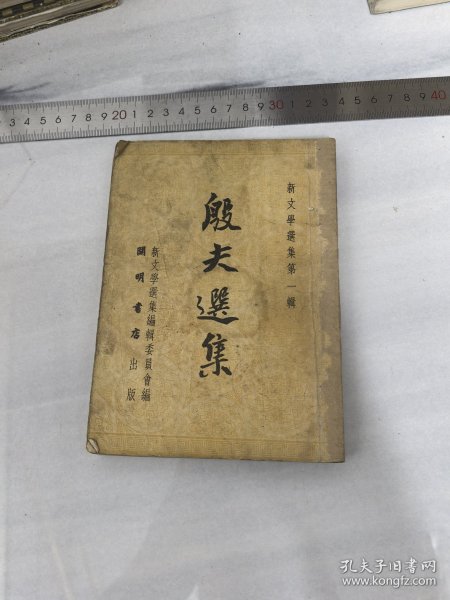 新文學選集第一輯
殷夫選集
新文學選集編輯委員會編
開明書店出版
3 4 5 6 7 8 9 20 1 2 3 4 5 6 7 8 9 30 1 2 3 4 5 6 7 8 9 40
孔夫子旧书网
www.kongfz.com